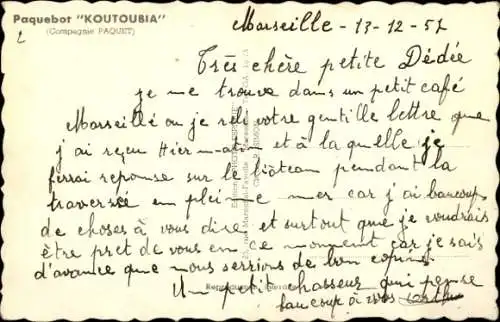 Paquebot "KOUTOUBIA"
(Compagnie PAQUET)
Marseille - 13-12-57
Très chère petite Dédée
je me trouve dans un petit café
Marseille ou je reli votre gentille lettre que
j'ai reçu Hier matin et à la quelle je
ferrai reponse sur le bâteau pendant la
traversée en pleine mer car j'ai beaucoup
de choses à vous dire et surtout que je voudrais
être pret de vous en ce moment car je sais
d'avance que nous serrions de bon copins
Un petit chasseur qui pense
baucoup à vous